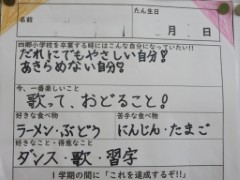 名前
たん生日
月 日
四郷小学校を卒業する時にはこんな自分になっていたい!!
だれにでもやさしい自分!
あきらめない自分!
今、一番楽しいこと
歌って、おどること!
好きな食べ物 苦手な食べ物
ラーメン・ぶどう にんじん・たまご
好きなこと・得意なこと
ダンス・歌・習字
1学期の間に「これを達成するぞ!!」